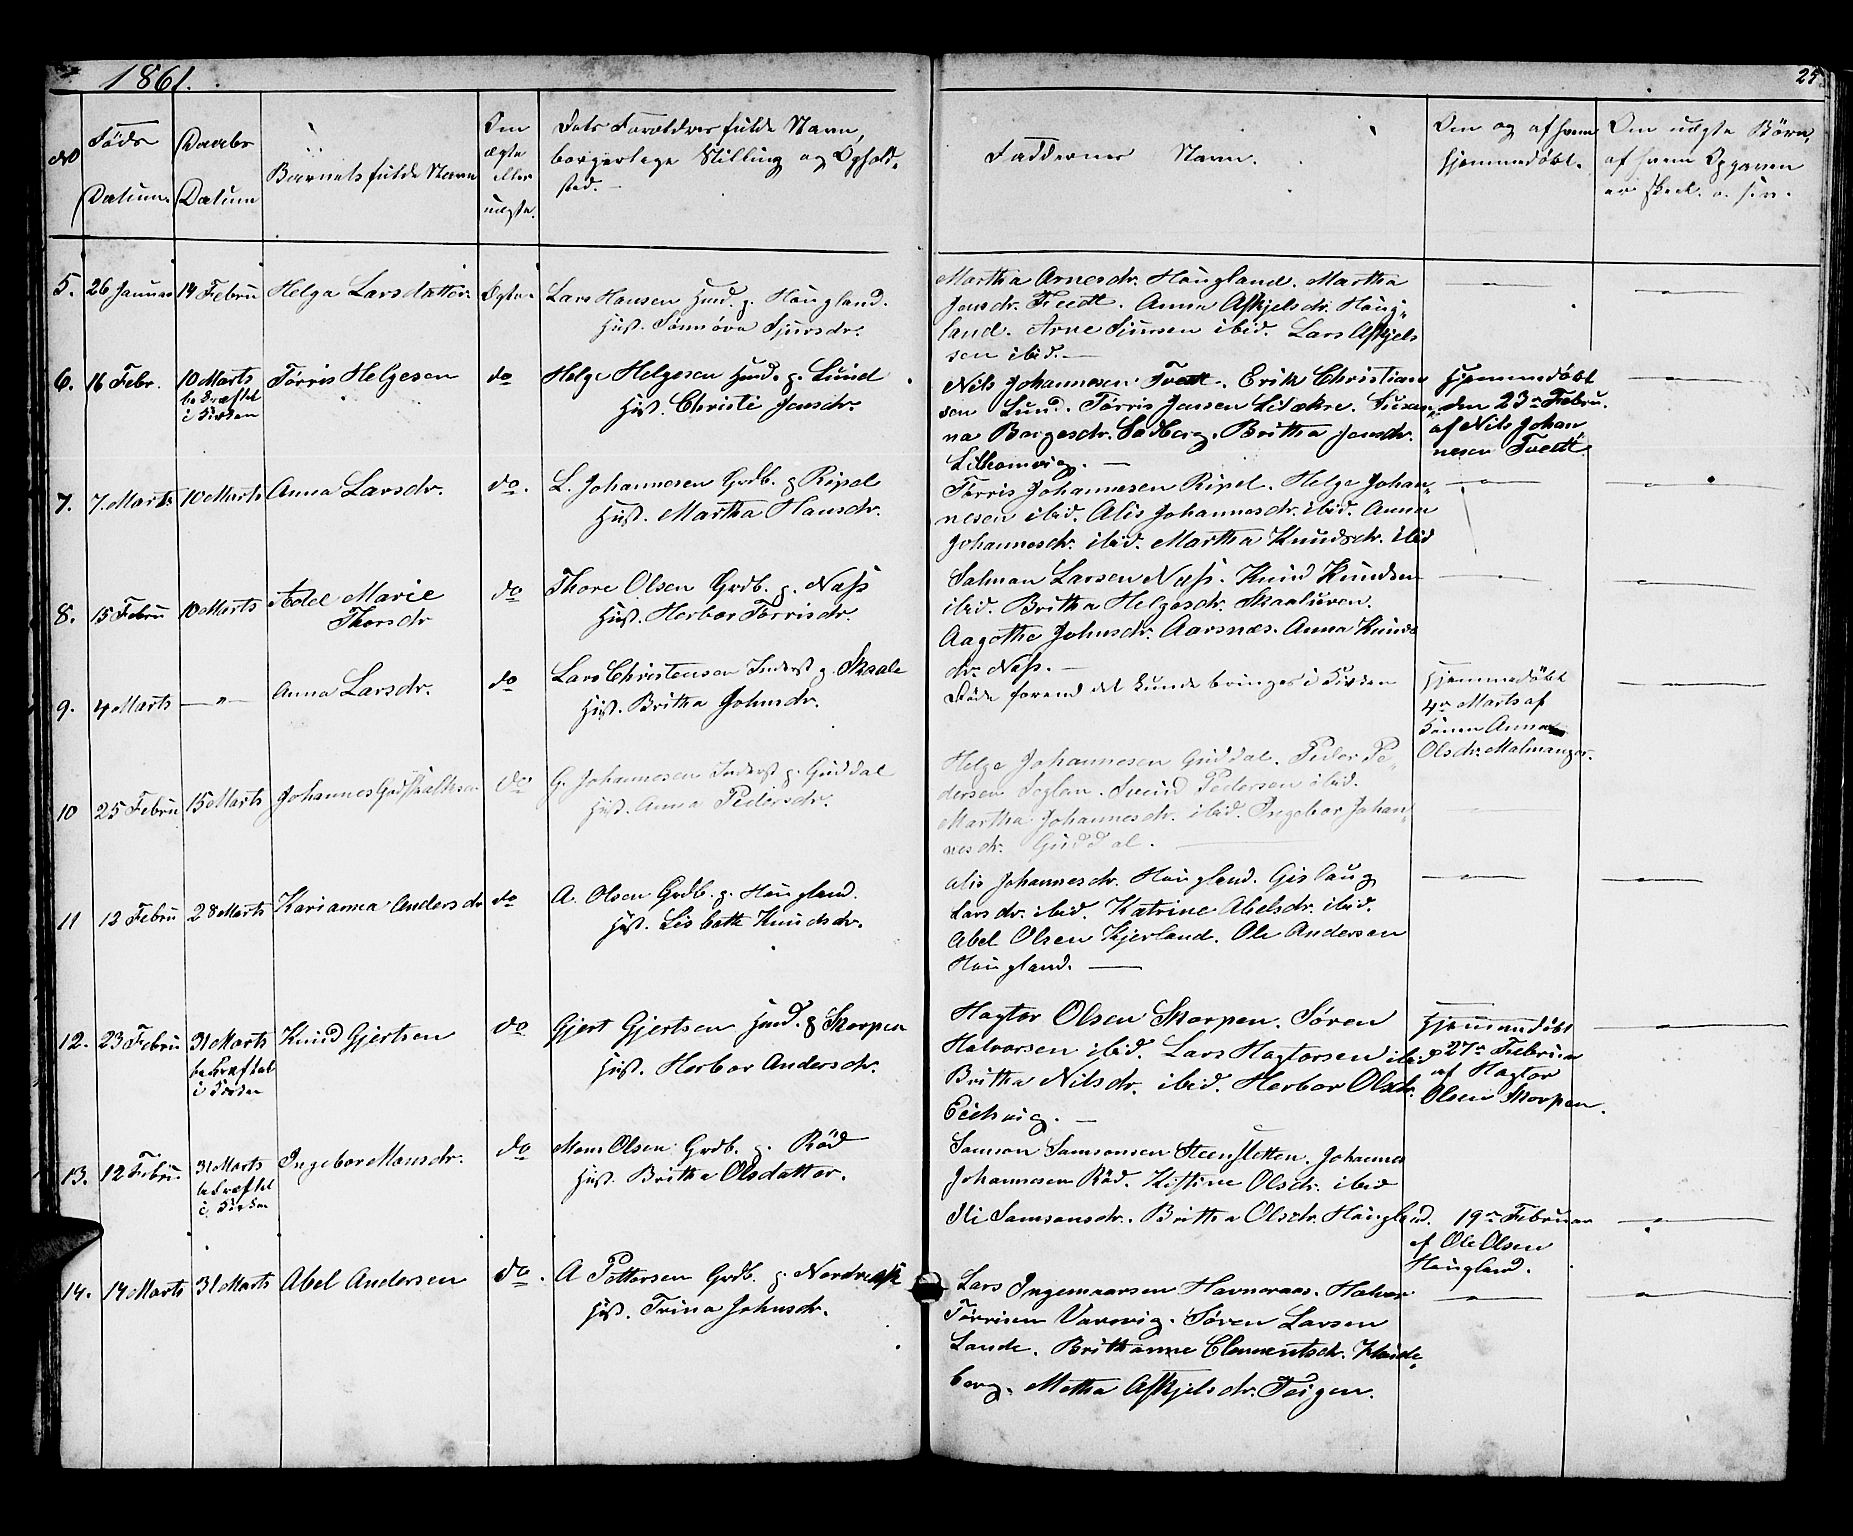 1861.
25
No
Føds
Datum.
Daabs
Datum
Barnets fulde Navn
Om
ægte
eller
uægte.
Dets Forældres fulde Navn,
borgerlege Stilling og Ophold-
sted.
Faddernes Navn.
Om og af hvem
hjemmedøbt.
Om uægte Børn,
af hvem Opgaven
er skeet.
5. 26 Januar 14 Febru Helga Larsdatter. Ægte. Lars Hansen Huusd. p. Haugland.
Hust. Sønnøva Sjursdr.
Martha Arnesdr. Haugland. Martha
Jonsdr. Tvedt. Anna Askjelsdr. Haug-
land. Arne Simsen ibid. Lars Askjels
sen ibid.
6. 16 Febr. 10 Marts
bekræftet
i Kirken
Tørris Helgesen do Helge Helgesen Huusd. p. Lund
Hust. Christi Jonsdr.
Nils Johannesen Tvedt. Erik Christian
sen Lund. Tørris Jansen Lilækre. Susan-
na Børgesdr. Sadberg. Britha Jonsdr.
Hjemmedøbt
den 23de Febru.
af Nils Johan
nesen Tvedt.
7. 7. Marts 10 Marts Anna Larsdr. do. L. Johannesen Grdb. p Ripel
Hust. Martha Hansdr.
Tørris Johannesen Ripel. Helge Johan-
nesen ibid. Alis Johannesdr. ibid. Anna
Johannesdr. ibid. Martha Knudsdr. ibid
8. 15 Febru 10 Marts Adel Marie
Thorsdr
do Thore Olsen Grdb. p. Næss
Hust. Herbor Tørrisdr.
Salmon Larsen Næss. Knud Knudsen
ibid. Britha Helgesdr. Skaaluren.
Aagothe Johnsdr. Aarsnæs. Anna Knuds
dr. Næss.
9. 4 Marts — " — Anna Larsdr. do Lars Christensen Inderst p. Skaale
Hust. Britha Johnsdr.
Døde førend det kunde bringes i Kirken
Hjemmedøbt
4de Marts af
Konen Anna
Olsdr. Malmanger.
10 25 Febru 15 Marts Johannes Gudskalksen do G. Johannesen Inderst p. Guddal
Hust. Anna Pedersdr.
Helge Johannesen Guddal. Peder Pe-
dersen Seglen. Svend Pedersen ibid.
Martha Johannesdr. ibid. Ingebor Johan-
nesdr. Guddal.
11 12 Febru 28 Marts Karianna Andersdr do A. Olsen Grdb. p. Haugland.
Hust. Lisbeth Knudsdr.
Alis Johannesdr. Haugland. Gislaug
Larsdr. ibid. Katrine Abelsdr. ibid.
Abel Olsen Kjerland. Ole Andersen
Haugland.
12. 23 Febru 31 Marts
bekræftet
i Kirken
Knud Gjertsen do Gjert Gjertsen Huusd. p Skorpen
Hust. Herbor Andersdr.
Hagtor Olsen Skorpen. Søren
Halvorsen ibid. Lars Hagtorsen ibid
Britha Nilsdr. ibid. Herbor Olsdr.
Hjemmedøbt
27de Februar
af Hagtor
Olsen Skorpen.
13. 12 Febru. 31 Marts
bekræftet
i Kirken
Ingebor Monsdr. do Mons Olsen Grdb. p. Rød
Hust. Britha Olsdatter.
Samson Samsonsen Steensletten. Johannes
Johannesen Rød. Kistine Olsdr. ibid
Sli Samsonsdr. Britha Olsdr. Haugland.
19de Februar
af Ole Olsen
Haugland.
14. 14 Marts 31 Marts Abel Andersen do. A Pettersen Grdb. p Nordre
Hust. Trina Johnsdr.
Lars Ingemaarsen Havneraas. Halvor
Tørrisen Varvig. Søren Larsen
Lande. Brithanne Clementsdr. Hande-
berg. Metha Askjelsdr. Teigen.